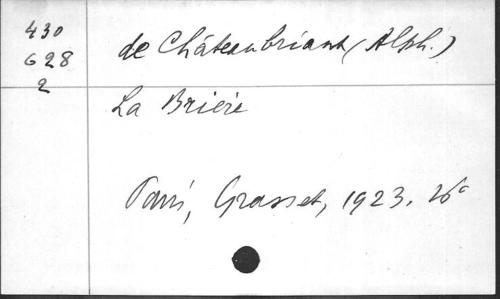 430
G 28
2
de Châteaubriant (Alph.)
La Brière
Paris, Grasset, 1923.